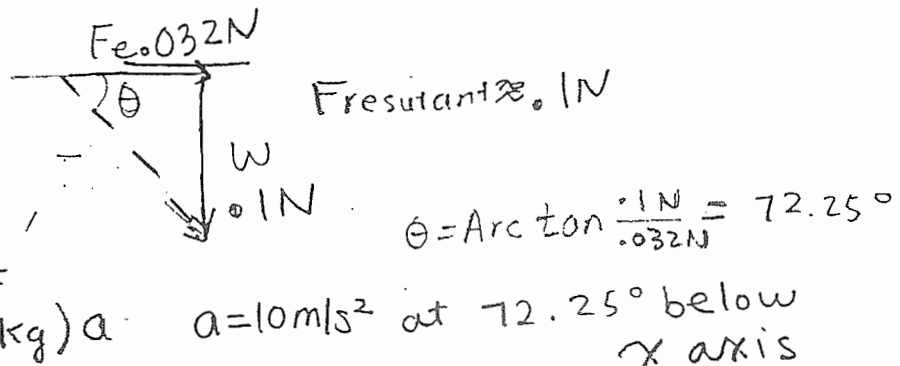 Fe.032N
θ
Fresutant≈.1N
W
.1N
θ=Arc tan .1N/.032N = 72.25°
kg)a a=10m/s² at 72.25° below
x axis